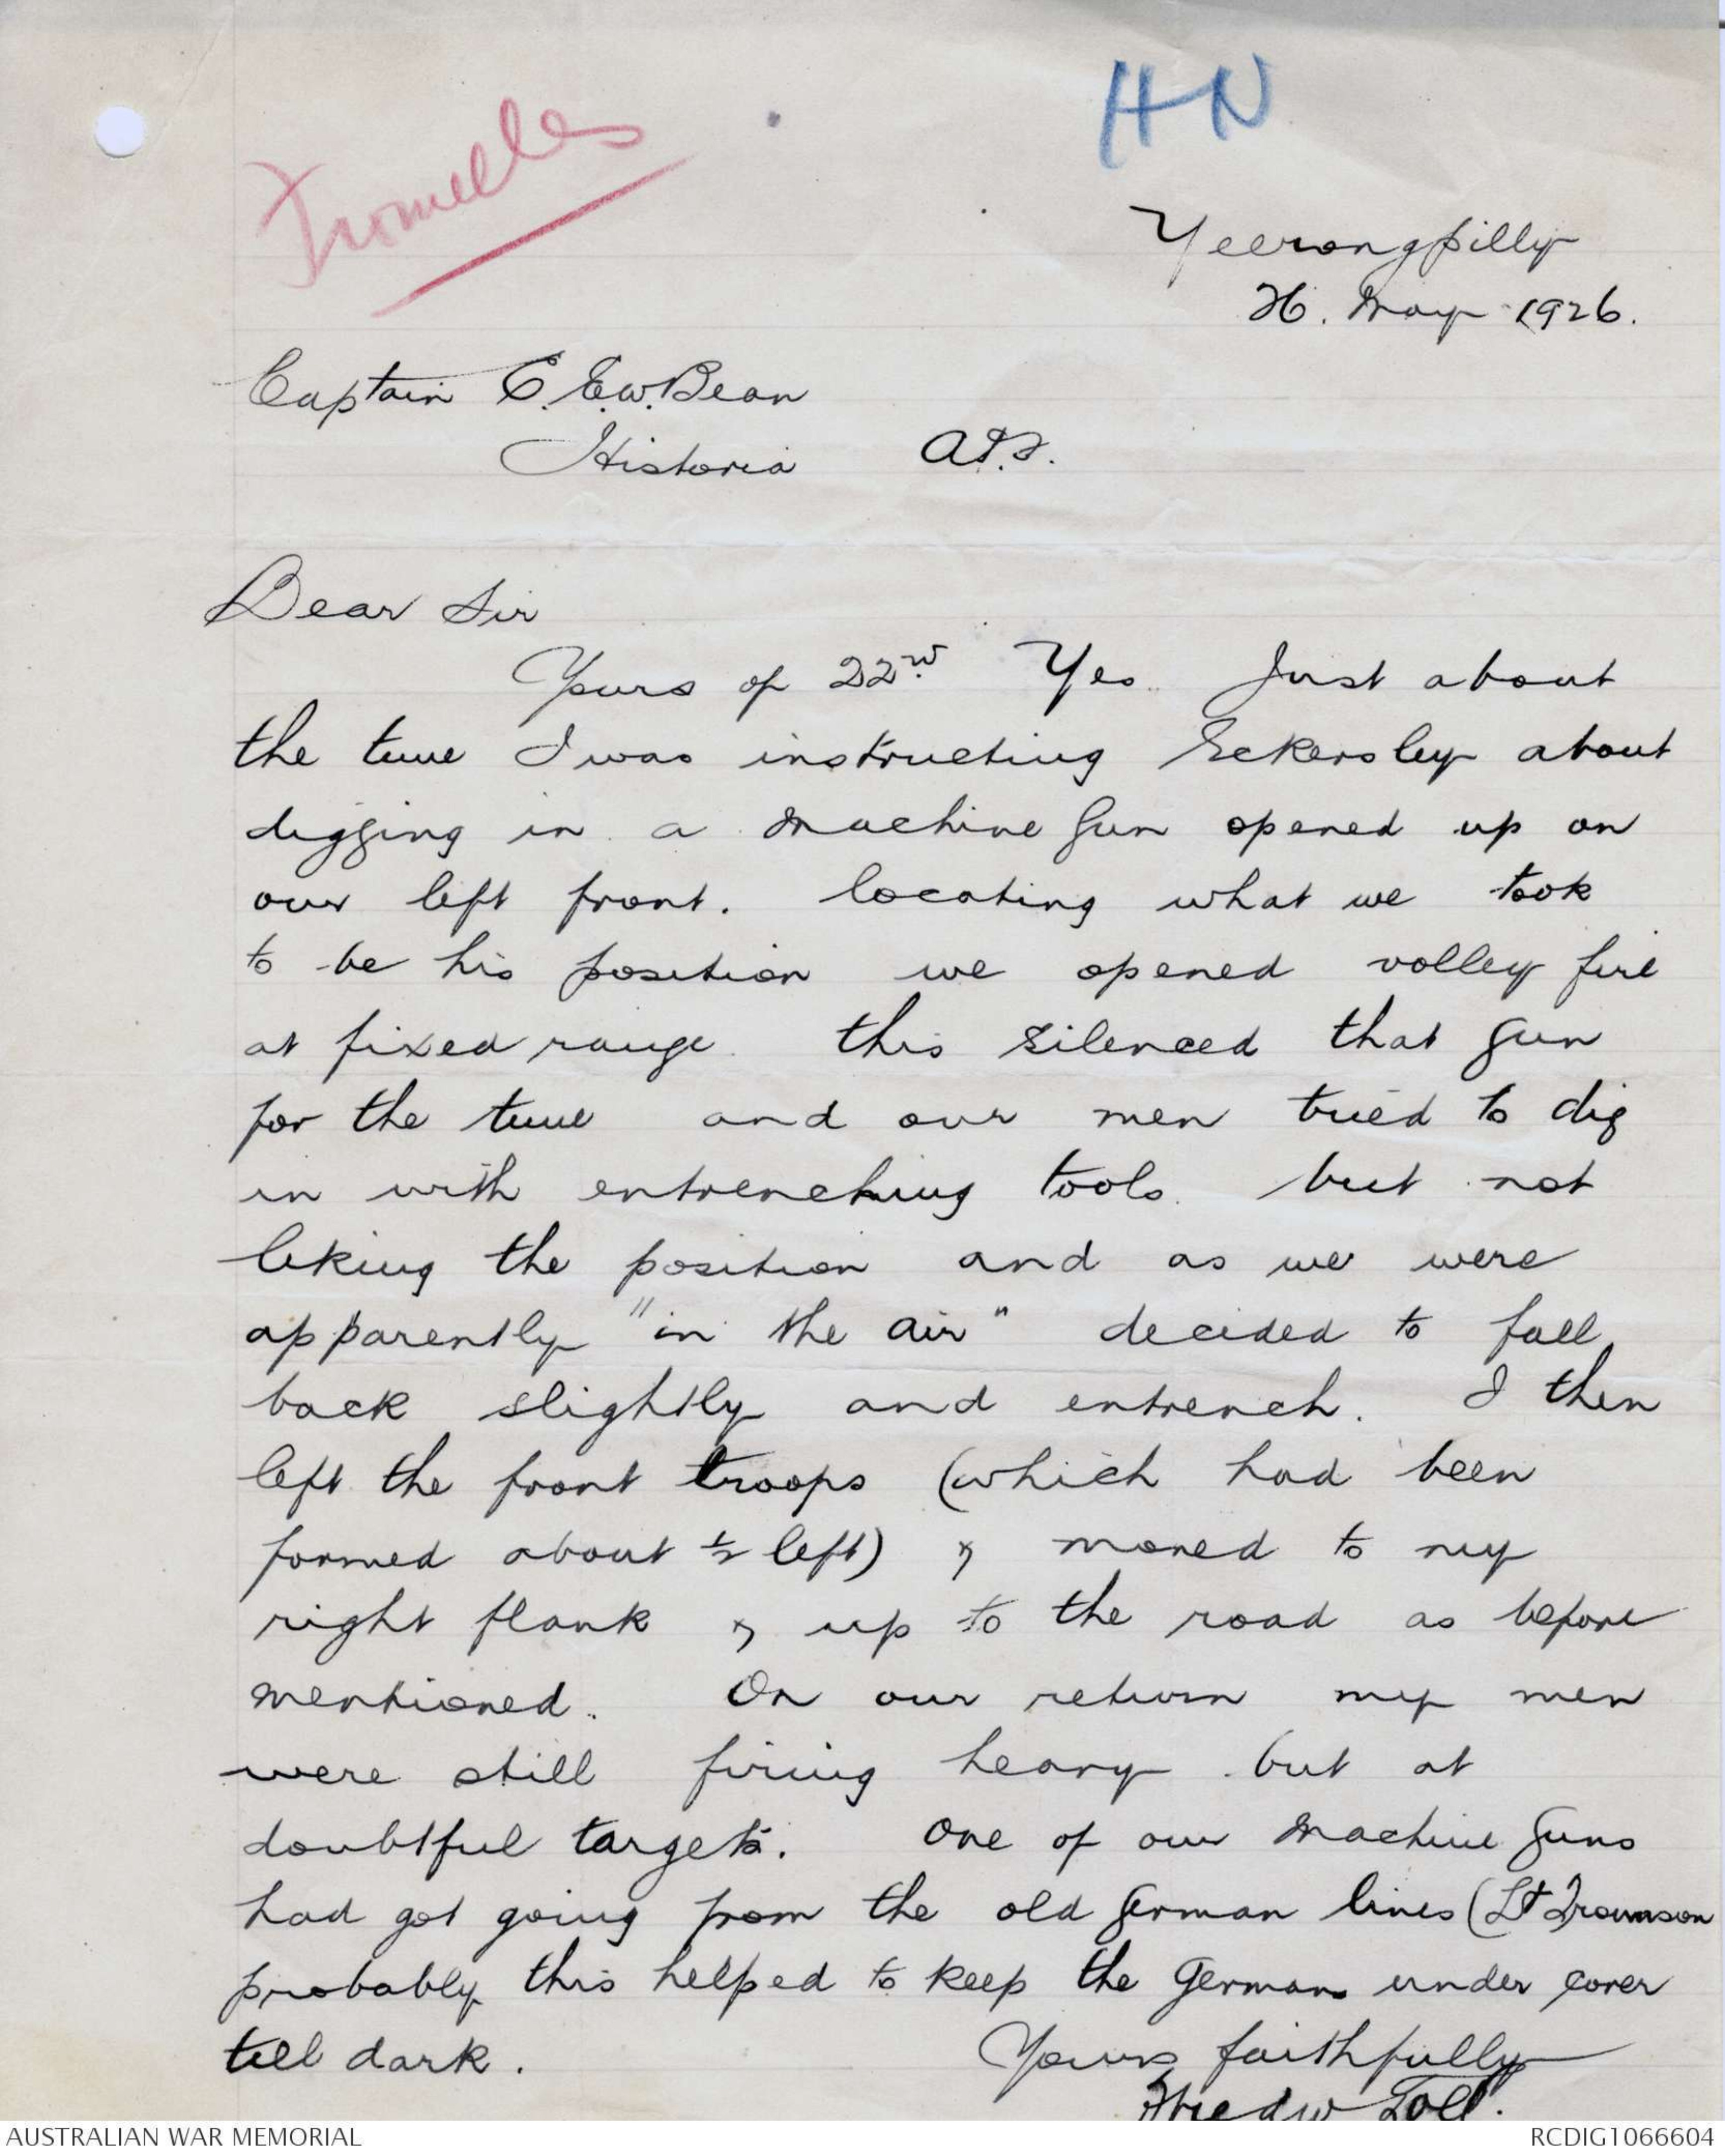 Fromelles
HN
Yeerongpilly
26. May 1926.
Captain C.E.W. Bean
Historia A.I.F.
Dear Sir
Yours of 22nd. Yes. Just about
the time I was instructing Eckersley about
digging in a Machine Gun opened up on
our left front. locating what we took
to be his position we opened volley fire
at fixed range. this silenced that Gun
for the time and our men tried to dig
in with entrenching tools. but not
liking the position and as we were
apparently "in the air" decided to fall
back slightly and entrench. I then
left the front troops (which had been
formed about ½ left) & moved to my
right flank & up to the road as before
mentioned. On our return my men
were still firing heavy but at
doubtful targets. One of our Machine Guns
had got going from the old German lines (Lt
probably this helped to keep the Germans under cover
till dark.
Yours faithfully
Fredw Toll.
AUSTRALIAN WAR MEMORIAL
RCDIG1066604